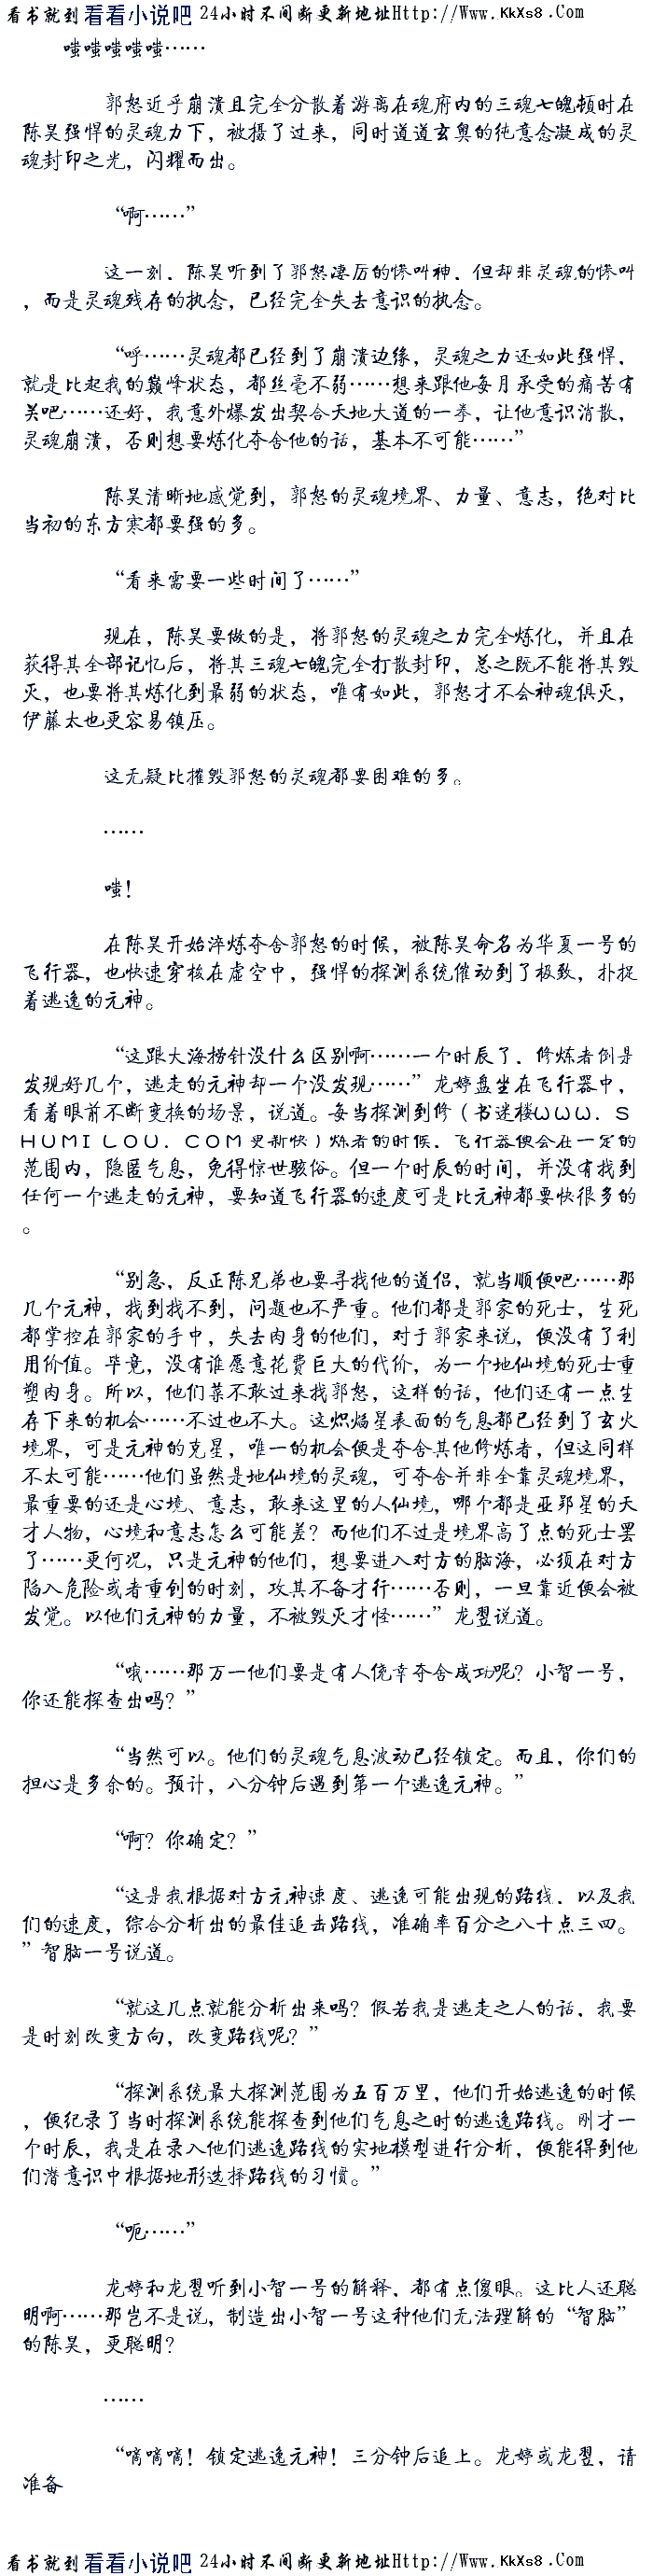 看书就到看看小说吧 24小时不间断更新地址Http://Www.KkXs8.Com
嗤嗤嗤嗤嗤……
郭怒近乎崩溃且完全分散着游离在魂府内的三魂七魄顿时在
陈昊强悍的灵魂力下，被摄了过来，同时道道玄奥的纯意念凝成的灵
魂封印之光，闪耀而出。
“啊……”
这一刻，陈昊听到了郭怒凄厉的惨叫神，但却非灵魂的惨叫
，而是灵魂残存的执念，已经完全失去意识的执念。
“呼……灵魂都已经到了崩溃边缘，灵魂之力还如此强悍，
就是比起我的巅峰状态，都丝毫不弱……想来跟他每月承受的痛苦有
关吧……还好，我意外爆发出契合天地大道的一拳，让他意识消散，
灵魂崩溃，否则想要炼化夺舍他的话，基本不可能……”
陈昊清晰地感觉到，郭怒的灵魂境界、力量、意志，绝对比
当初的东方寒都要强的多。
“看来需要一些时间了……”
现在，陈昊要做的是，将郭怒的灵魂之力完全炼化，并且在
获得其全部记忆后，将其三魂七魄完全打散封印，总之既不能将其毁
灭，也要将其炼化到最弱的状态，唯有如此，郭怒才不会神魂俱灭，
伊藤太也更容易镇压。
这无疑比摧毁郭怒的灵魂都要困难的多。
……
嗤！
在陈昊开始淬炼夺舍郭怒的时候，被陈昊命名为华夏一号的
飞行器，也快速穿梭在虚空中，强悍的探测系统催动到了极致，扑捉
着逃逸的元神。
“这跟大海捞针没什么区别啊……一个时辰了，修炼者倒是
发现好几个，逃走的元神却一个没发现……”龙婷盘坐在飞行器中，
看着眼前不断变换的场景，说道。每当探测到修（书迷楼ＷＷＷ．Ｓ
ＨＵＭＩＬＯＵ．ＣＯＭ更新快）炼者的时候，飞行器便会在一定的
范围内，隐匿气息，免得惊世骇俗。但一个时辰的时间，并没有找到
任何一个逃走的元神，要知道飞行器的速度可是比元神都要快很多的
。
“别急，反正陈兄弟也要寻找他的道侣，就当顺便吧……那
几个元神，找到找不到，问题也不严重。他们都是郭家的死士，生死
都掌控在郭家的手中，失去肉身的他们，对于郭家来说，便没有了利
用价值。毕竟，没有谁愿意花费巨大的代价，为一个地仙境的死士重
塑肉身。所以，他们菜不敢过来找郭怒，这样的话，他们还有一点生
存下来的机会……不过也不大。这炽焰星表面的气息都已经到了玄火
境界，可是元神的克星，唯一的机会便是夺舍其他修炼者，但这同样
不太可能……他们虽然是地仙境的灵魂，可夺舍并非全靠灵魂境界，
最重要的还是心境、意志，敢来这里的人仙境，哪个都是亚郢星的天
才人物，心境和意志怎么可能差？而他们不过是境界高了点的死士罢
了……更何况，只是元神的他们，想要进入对方的脑海，必须在对方
陷入危险或者重创的时刻，攻其不备才行……否则，一旦靠近便会被
发觉。以他们元神的力量，不被毁灭才怪……”龙翌说道。
“哦……那万一他们要是有人侥幸夺舍成功呢？小智一号，
你还能探查出吗？”
“当然可以。他们的灵魂气息波动已经锁定。而且，你们的
担心是多余的。预计，八分钟后遇到第一个逃逸元神。”
“啊？你确定？”
“这是我根据对方元神速度、逃逸可能出现的路线，以及我
们的速度，综合分析出的最佳追击路线，准确率百分之八十点三四。
”智脑一号说道。
“就这几点就能分析出来吗？假若我是逃走之人的话，我要
是时刻改变方向，改变路线呢？”
“探测系统最大探测范围为五百万里，他们开始逃逸的时候
，便纪录了当时探测系统能探查到他们气息之时的逃逸路线。刚才一
个时辰，我是在录入他们逃逸路线的实地模型进行分析，便能得到他
们潜意识中根据地形选择路线的习惯。”
“呃……”
龙婷和龙翌听到小智一号的解释，都有点傻眼。这比人还聪
明啊……那岂不是说，制造出小智一号这种他们无法理解的“智脑”
的陈昊，更聪明？
……
“嘀嘀嘀！锁定逃逸元神！三分钟后追上。龙婷或龙翌，请
准备
看书就到看看小说吧 24小时不间断更新地址Http://Www.KkXs8.Com